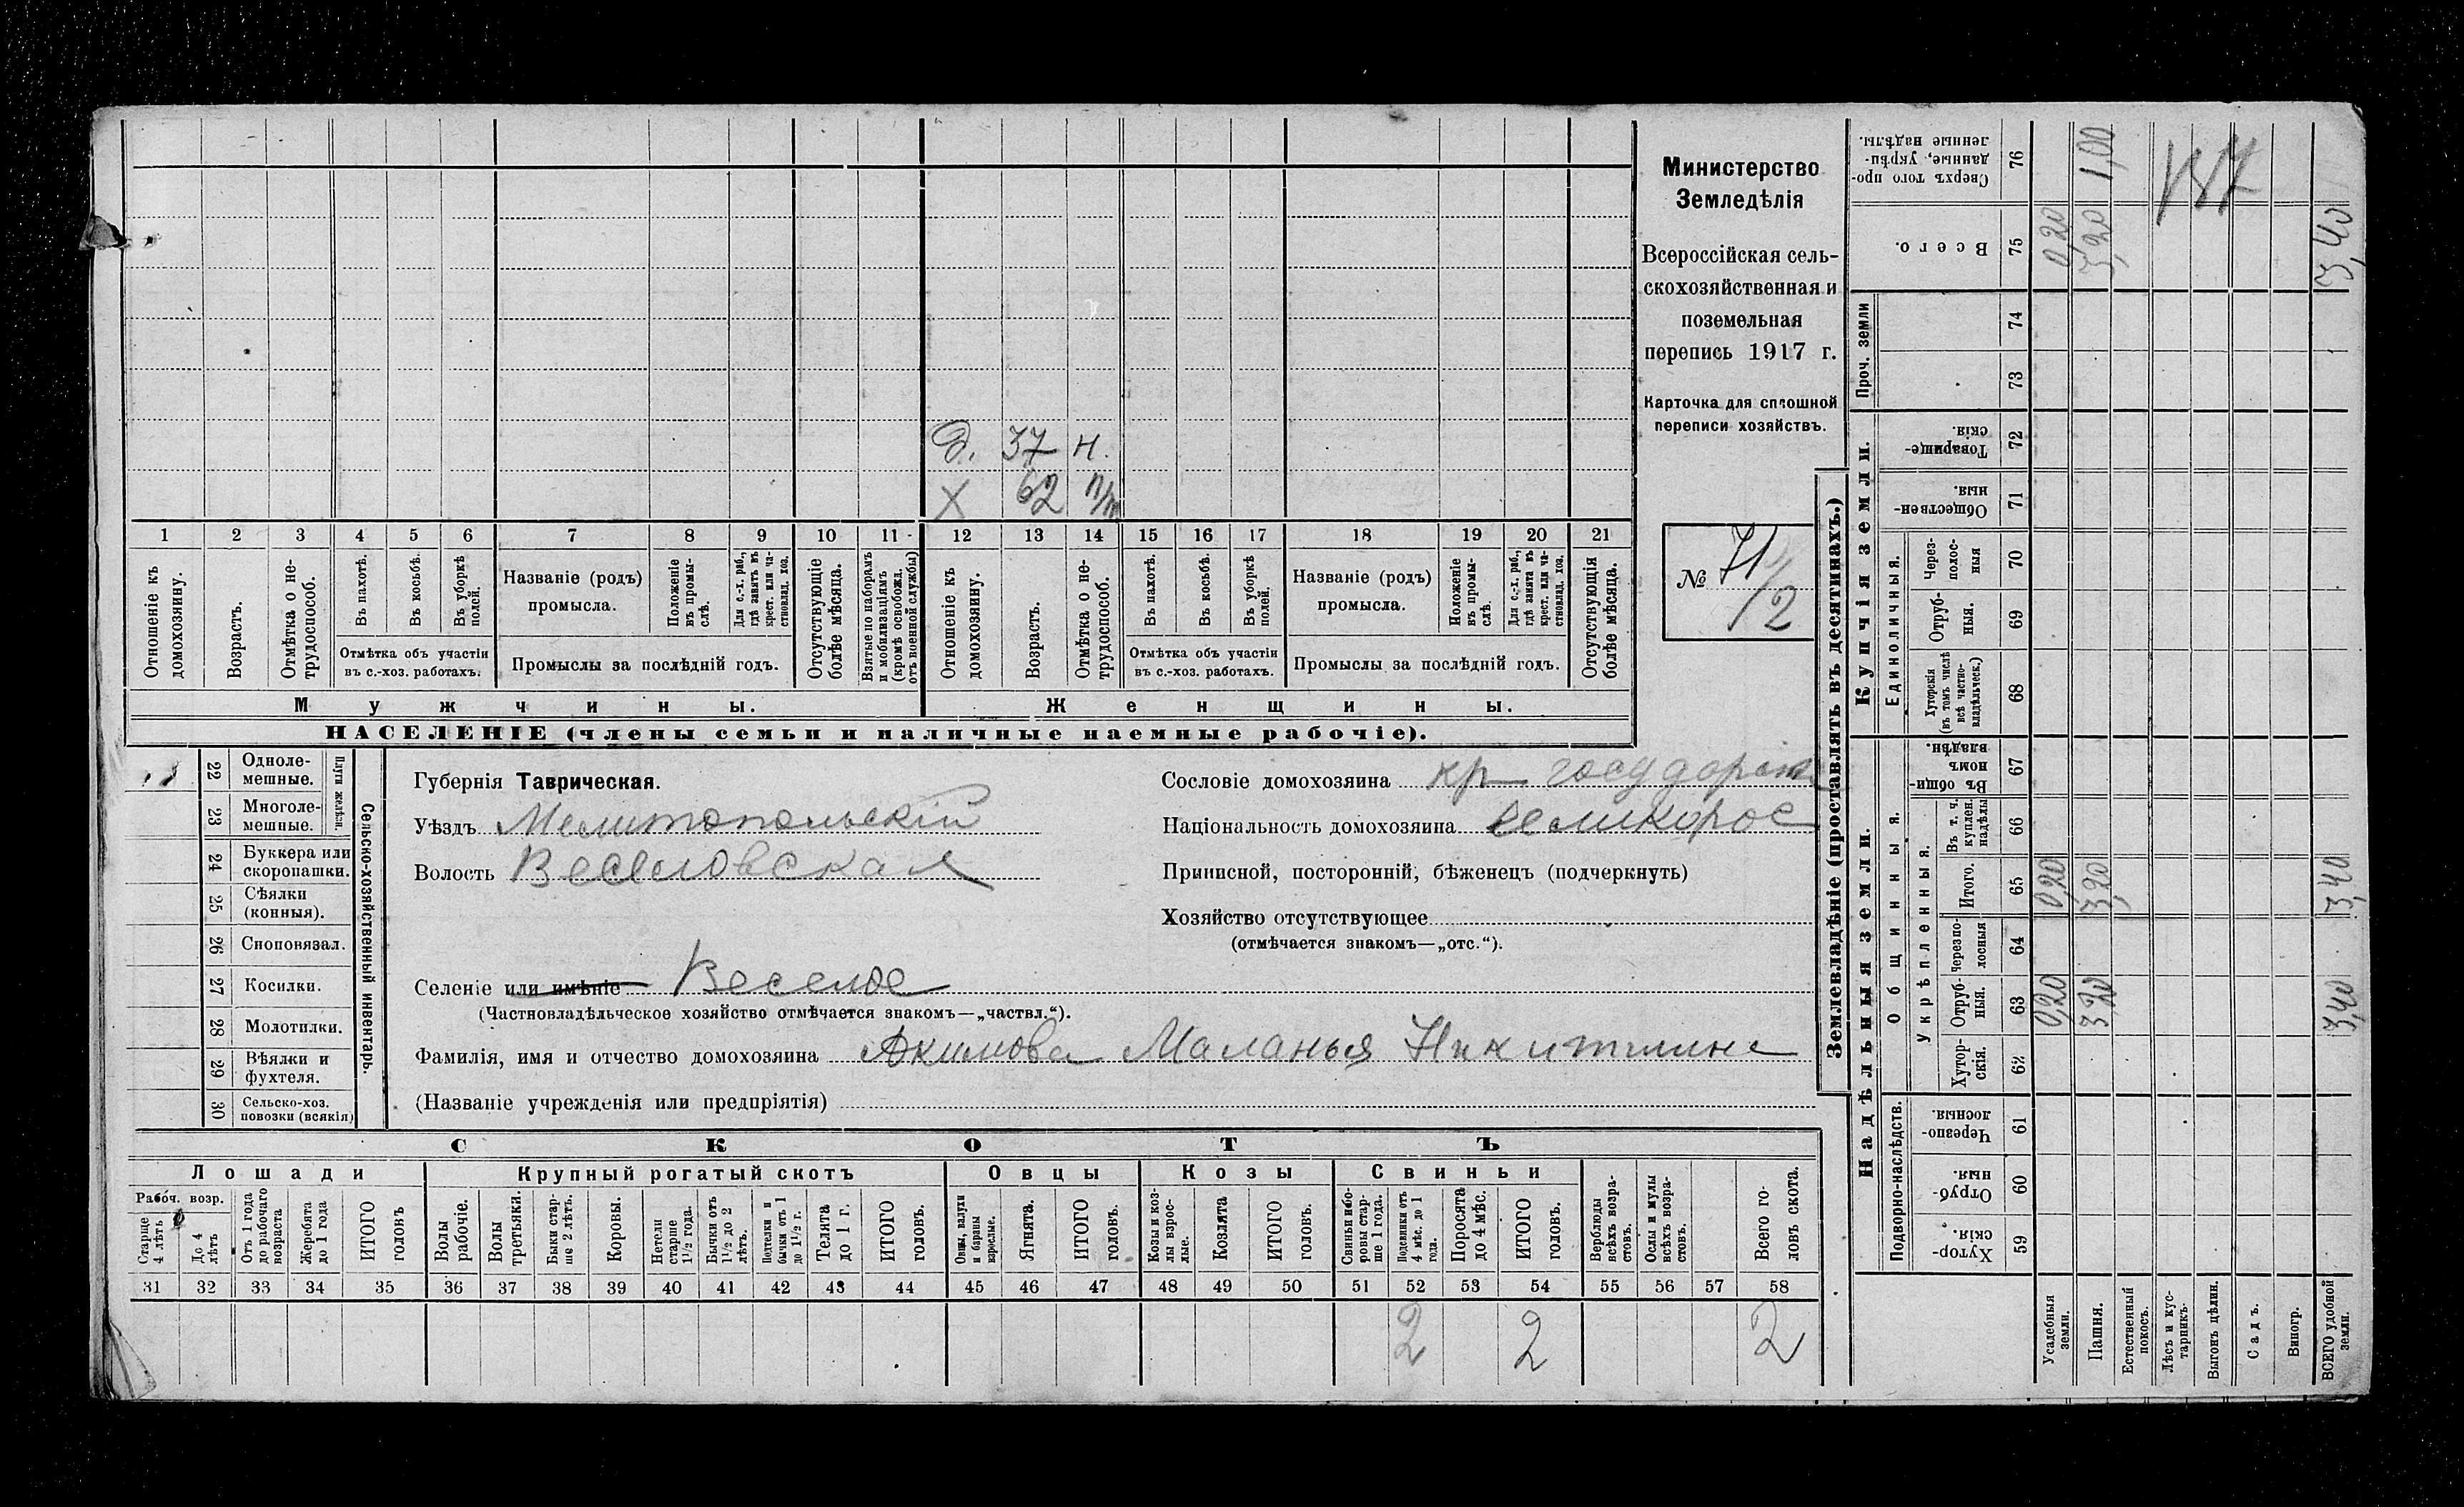 Министерство
Земледѣлія
Всероссійская сель-
скохозяйственная и
поземельная
перепись 1917 г.
Карточка для сплошной
переписи хозяйствъ.
№ 71/2
д. 37 н.
х 62 п/т
1 2 3 4 5 6 7 8 9 10 11 12 13 14 15 16 17 18 19 20 21
Отношеніе къ домохозяину.
Возрастъ.
Отмѣтка о не-трудоспособ.
Въ пахотѣ.
Въ косьбѣ.
Въ уборкѣ полей.
Отмѣтка объ участіи въ с.-хоз. работахъ.
Названіе (родъ) промысла.
Положеніе въ промы-слѣ.
Для с.-х. раб., гдѣ занятъ въ крест. или ча-стновлад. хоз.
Промыслы за послѣдній годъ.
Отсутствующіе болѣе мѣсяца.
Взятые по наборамъ и мобилизаціямъ (кромѣ освобожд. отъ военной службы)
Отношеніе къ домохозяину.
Возрастъ.
Отмѣтка о не-трудоспособ.
Въ пахотѣ.
Въ косьбѣ.
Въ уборкѣ полей.
Отмѣтка объ участіи въ с.-хоз. работахъ.
Названіе (родъ) промысла.
Положеніе въ промы-слѣ.
Для с.-х. раб., гдѣ занята въ крест. или ча-стновлад. хоз.
Промыслы за послѣдній годъ.
Отсутствующія болѣе мѣсяца.
Мужчины.
Женщины.
НАСЕЛЕНІЕ (члены семьи и наличные наемные рабочіе).
22 Одноле-мешные.
23 Многоле-мешные.
Плуги желѣзн.
24 Буккера или скоропашки.
25 Сѣялки (конныя).
26 Сноповязал.
27 Косилки.
28 Молотилки.
29 Вѣялки и фухтеля.
30 Сельско-хоз. повозки (всякія)
Сельско-хозяйственный инвентарь.
Губернія Таврическая.
Уѣздъ Мелитопольскій
Волость Веселовская
Сословіе домохозяина кр государств
Національность домохозяина великорос
Приписной, посторонній, бѣженецъ (подчеркнуть)
Хозяйство отсутствующее
(отмѣчается знакомъ—„отс.“).
Селеніе или имѣніе Веселое
(Частновладѣльческое хозяйство отмѣчается знакомъ—„частвл.“).
Фамилія, имя и отчество домохозяина Акимова Маланья Никитична
(Названіе учрежденія или предпріятія)
СКОТЪ
Лошади Крупный рогатый скотъ Овцы Козы Свиньи
Рабоч. возр.
Старше 4 лѣтъ
До 4 лѣтъ
Отъ 1 года до рабочаго возраста
Жеребята до 1 года
ИТОГО головъ
Волы рабочіе.
Волы третьяки.
Быки стар-ше 2 лѣтъ.
Коровы.
Нетели старше 1½ года.
Бычки отъ 1½ до 2 лѣтъ.
Подтелки и бычки отъ 1 до 1½ г.
Телята до 1 г.
ИТОГО головъ.
Овцы, валухи и бараны взрослые.
Ягнята.
ИТОГО головъ.
Козы и коз-лы взрос-лые.
Козлята
ИТОГО головъ.
Свиньи и бо-ровы стар-ше 1 года.
Подсвинки отъ 4 мѣс. до 1 года.
Поросята до 4 мѣс.
ИТОГО головъ.
Верблюды всѣхъ возра-стовъ.
Ослы и мулы всѣхъ возра-стовъ.
Всего го-ловъ скота.
31 32 33 34 35 36 37 38 39 40 41 42 43 44 45 46 47 48 49 50 51 52 53 54 55 56 57 58
2 2 2
Землевладѣніе (проставлять въ десятинахъ.)
Надѣльныя земли.
Купчія земли.
Проч. земли
Подворно-наслѣдств.
Общинныя.
Укрѣпленныя.
Единоличныя.
Хутор-скія. 59
Отруб-ныя. 60
Черезпо-лосныя. 61
Хутор-скія. 62
Отруб-ныя. 63 0,20 3,20 3,40
Черезпо-лосныя 64
Итого. 65 0,20 3,20 3,40
Въ т. ч. куплен. надѣлы 66
Въ общин-номъ владѣн. 67
Хуторскія (въ томъ числѣ всѣ частно-владѣльческ.) 68
Отруб-ныя. 69
Через-полос-ныя 70
Обществен-ныя. 71
Товарище-скія. 72
73
74
Всего. 75 0,20 3,20 3,40
Сверхъ того про-данные, укрѣп-ленные надѣлы. 76 1,00
Усадебныя земли.
Пашня.
Естественный покосъ.
Лѣсъ и кус-тарникъ.
Выгонъ цѣлин.
Садъ.
Виногр.
ВСЕГО удобной земли.